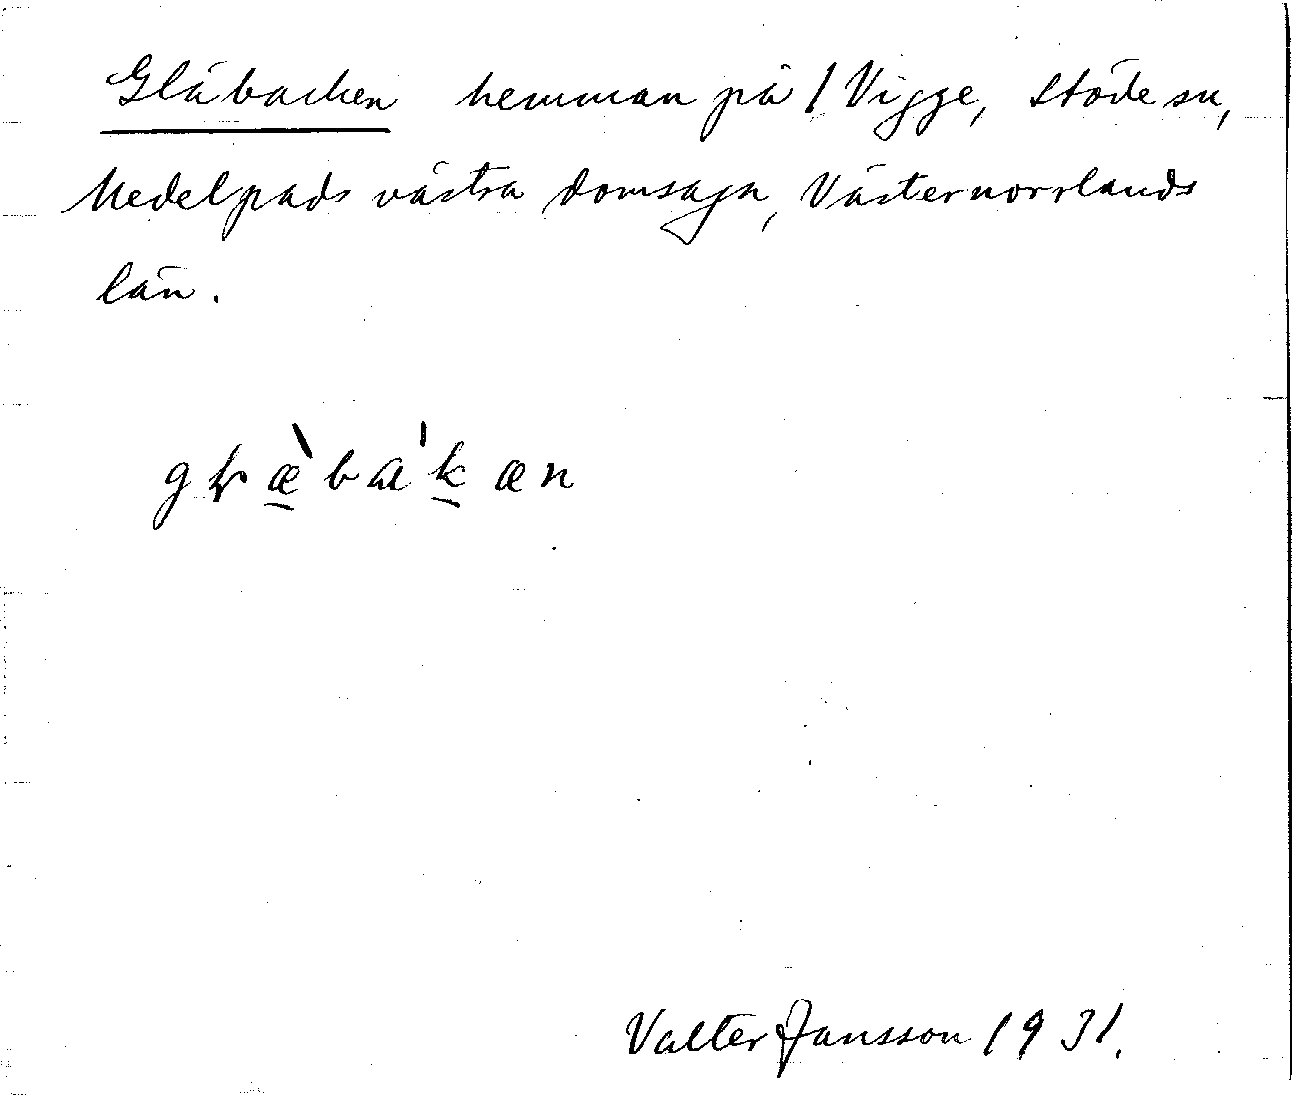 Gläbacken hemman på 1 Vigge, Stöde sn,
Medelpads västra domsaga, Västernorrlands
län.
gɽæ̠̀baˈk̠æn
Valter Jansson 1931.